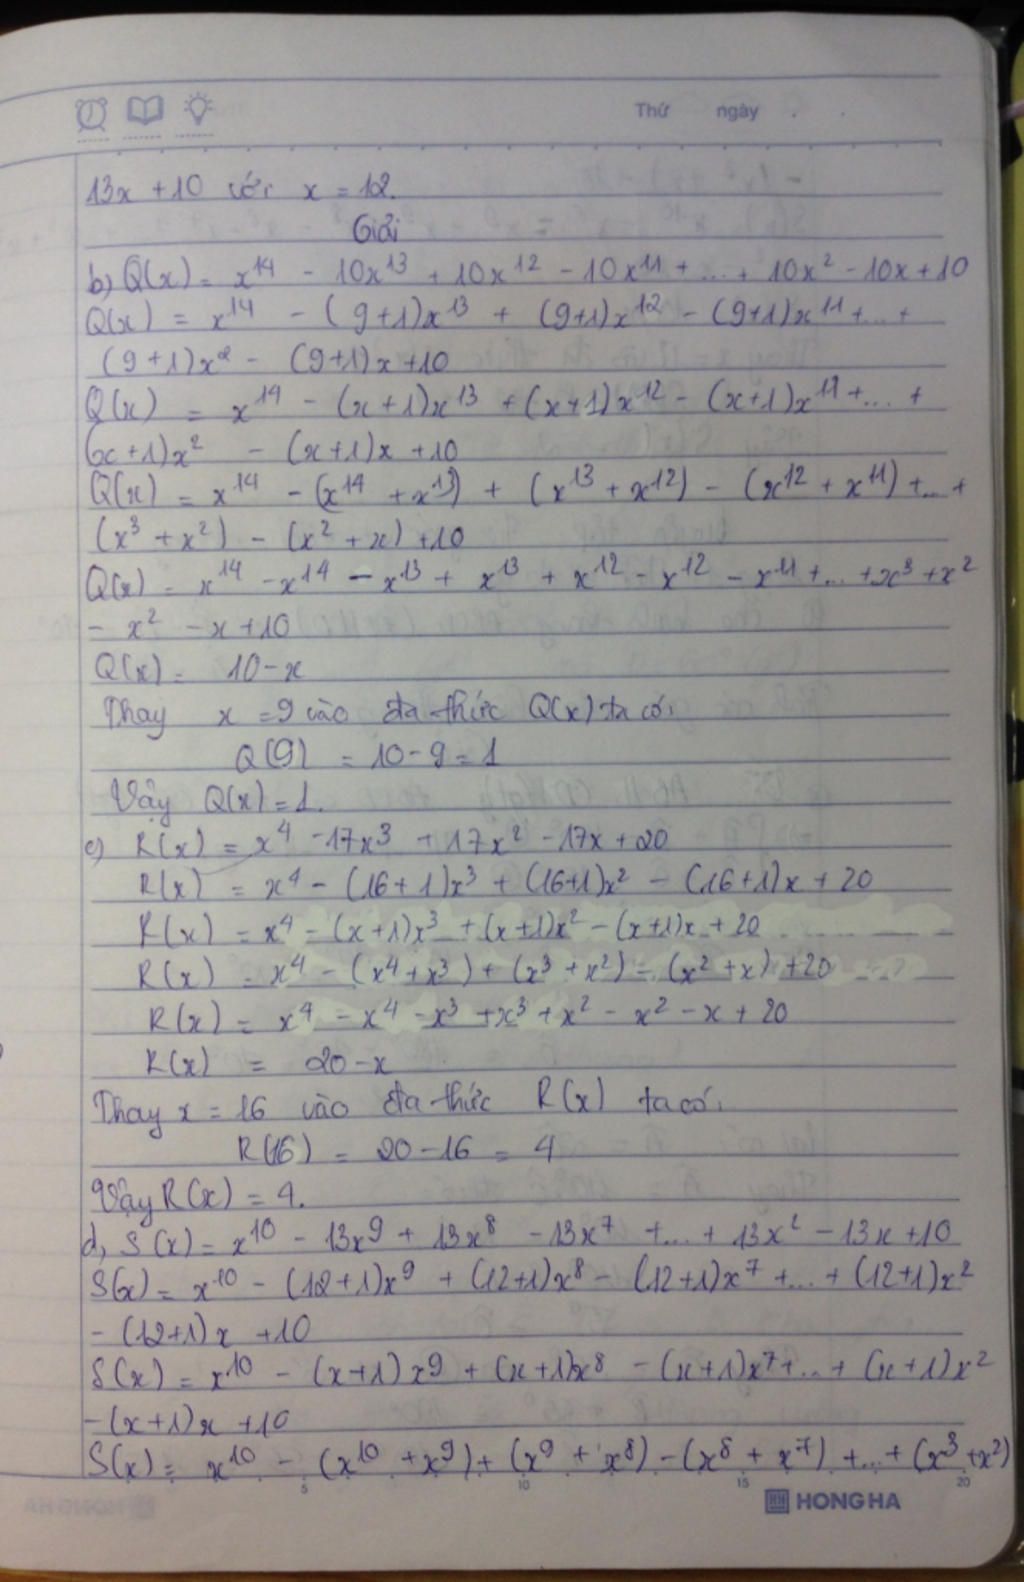 Thứ ngày
13x + 10 với x = 12.
Giải
b) Q(x) = x^14 - 10x^13 + 10x^12 - 10x^11 + ... + 10x^2 - 10x + 10
Q(x) = x^14 - (9+1)x^13 + (9+1)x^12 - (9+1)x^11 + ... +
(9+1)x^2 - (9+1)x + 10
Q(x) = x^14 - (x+1)x^13 + (x+1)x^12 - (x+1)x^11 + ... +
(x+1)x^2 - (x+1)x + 10
Q(x) = x^14 - (x^14 + x^13) + (x^13 + x^12) - (x^12 + x^11) + ... +
(x^3 + x^2) - (x^2 + x) + 10
Q(x) = x^14 - x^14 - x^13 + x^13 + x^12 - x^12 - x^11 + ... + x^3 + x^2
- x^2 - x + 10
Q(x) = 10 - x
Thay x = 9 vào đa thức Q(x) ta có:
Q(9) = 10 - 9 = 1
Vậy Q(x) = 1.
c) R(x) = x^4 - 17x^3 + 17x^2 - 17x + 20
R(x) = x^4 - (16+1)x^3 + (16+1)x^2 - (16+1)x + 20
R(x) = x^4 - (x+1)x^3 + (x+1)x^2 - (x+1)x + 20
R(x) = x^4 - (x^4 + x^3) + (x^3 + x^2) - (x^2 + x) + 20
R(x) = x^4 - x^4 - x^3 + x^3 + x^2 - x^2 - x + 20
R(x) = 20 - x
Thay x = 16 vào đa thức R(x) ta có:
R(16) = 20 - 16 = 4
Vậy R(x) = 4.
d, S(x) = x^10 - 13x^9 + 13x^8 - 13x^7 + ... + 13x^2 - 13x + 10
S(x) = x^10 - (12+1)x^9 + (12+1)x^8 - (12+1)x^7 + ... + (12+1)x^2
- (12+1)x + 10
S(x) = x^10 - (x+1)x^9 + (x+1)x^8 - (x+1)x^7 + ... + (x+1)x^2
- (x+1)x + 10
S(x) = x^10 - (x^10 + x^9) + (x^9 + x^8) - (x^8 + x^7) + ... + (x^3 + x^2)
5 10 15 20
HONG HA